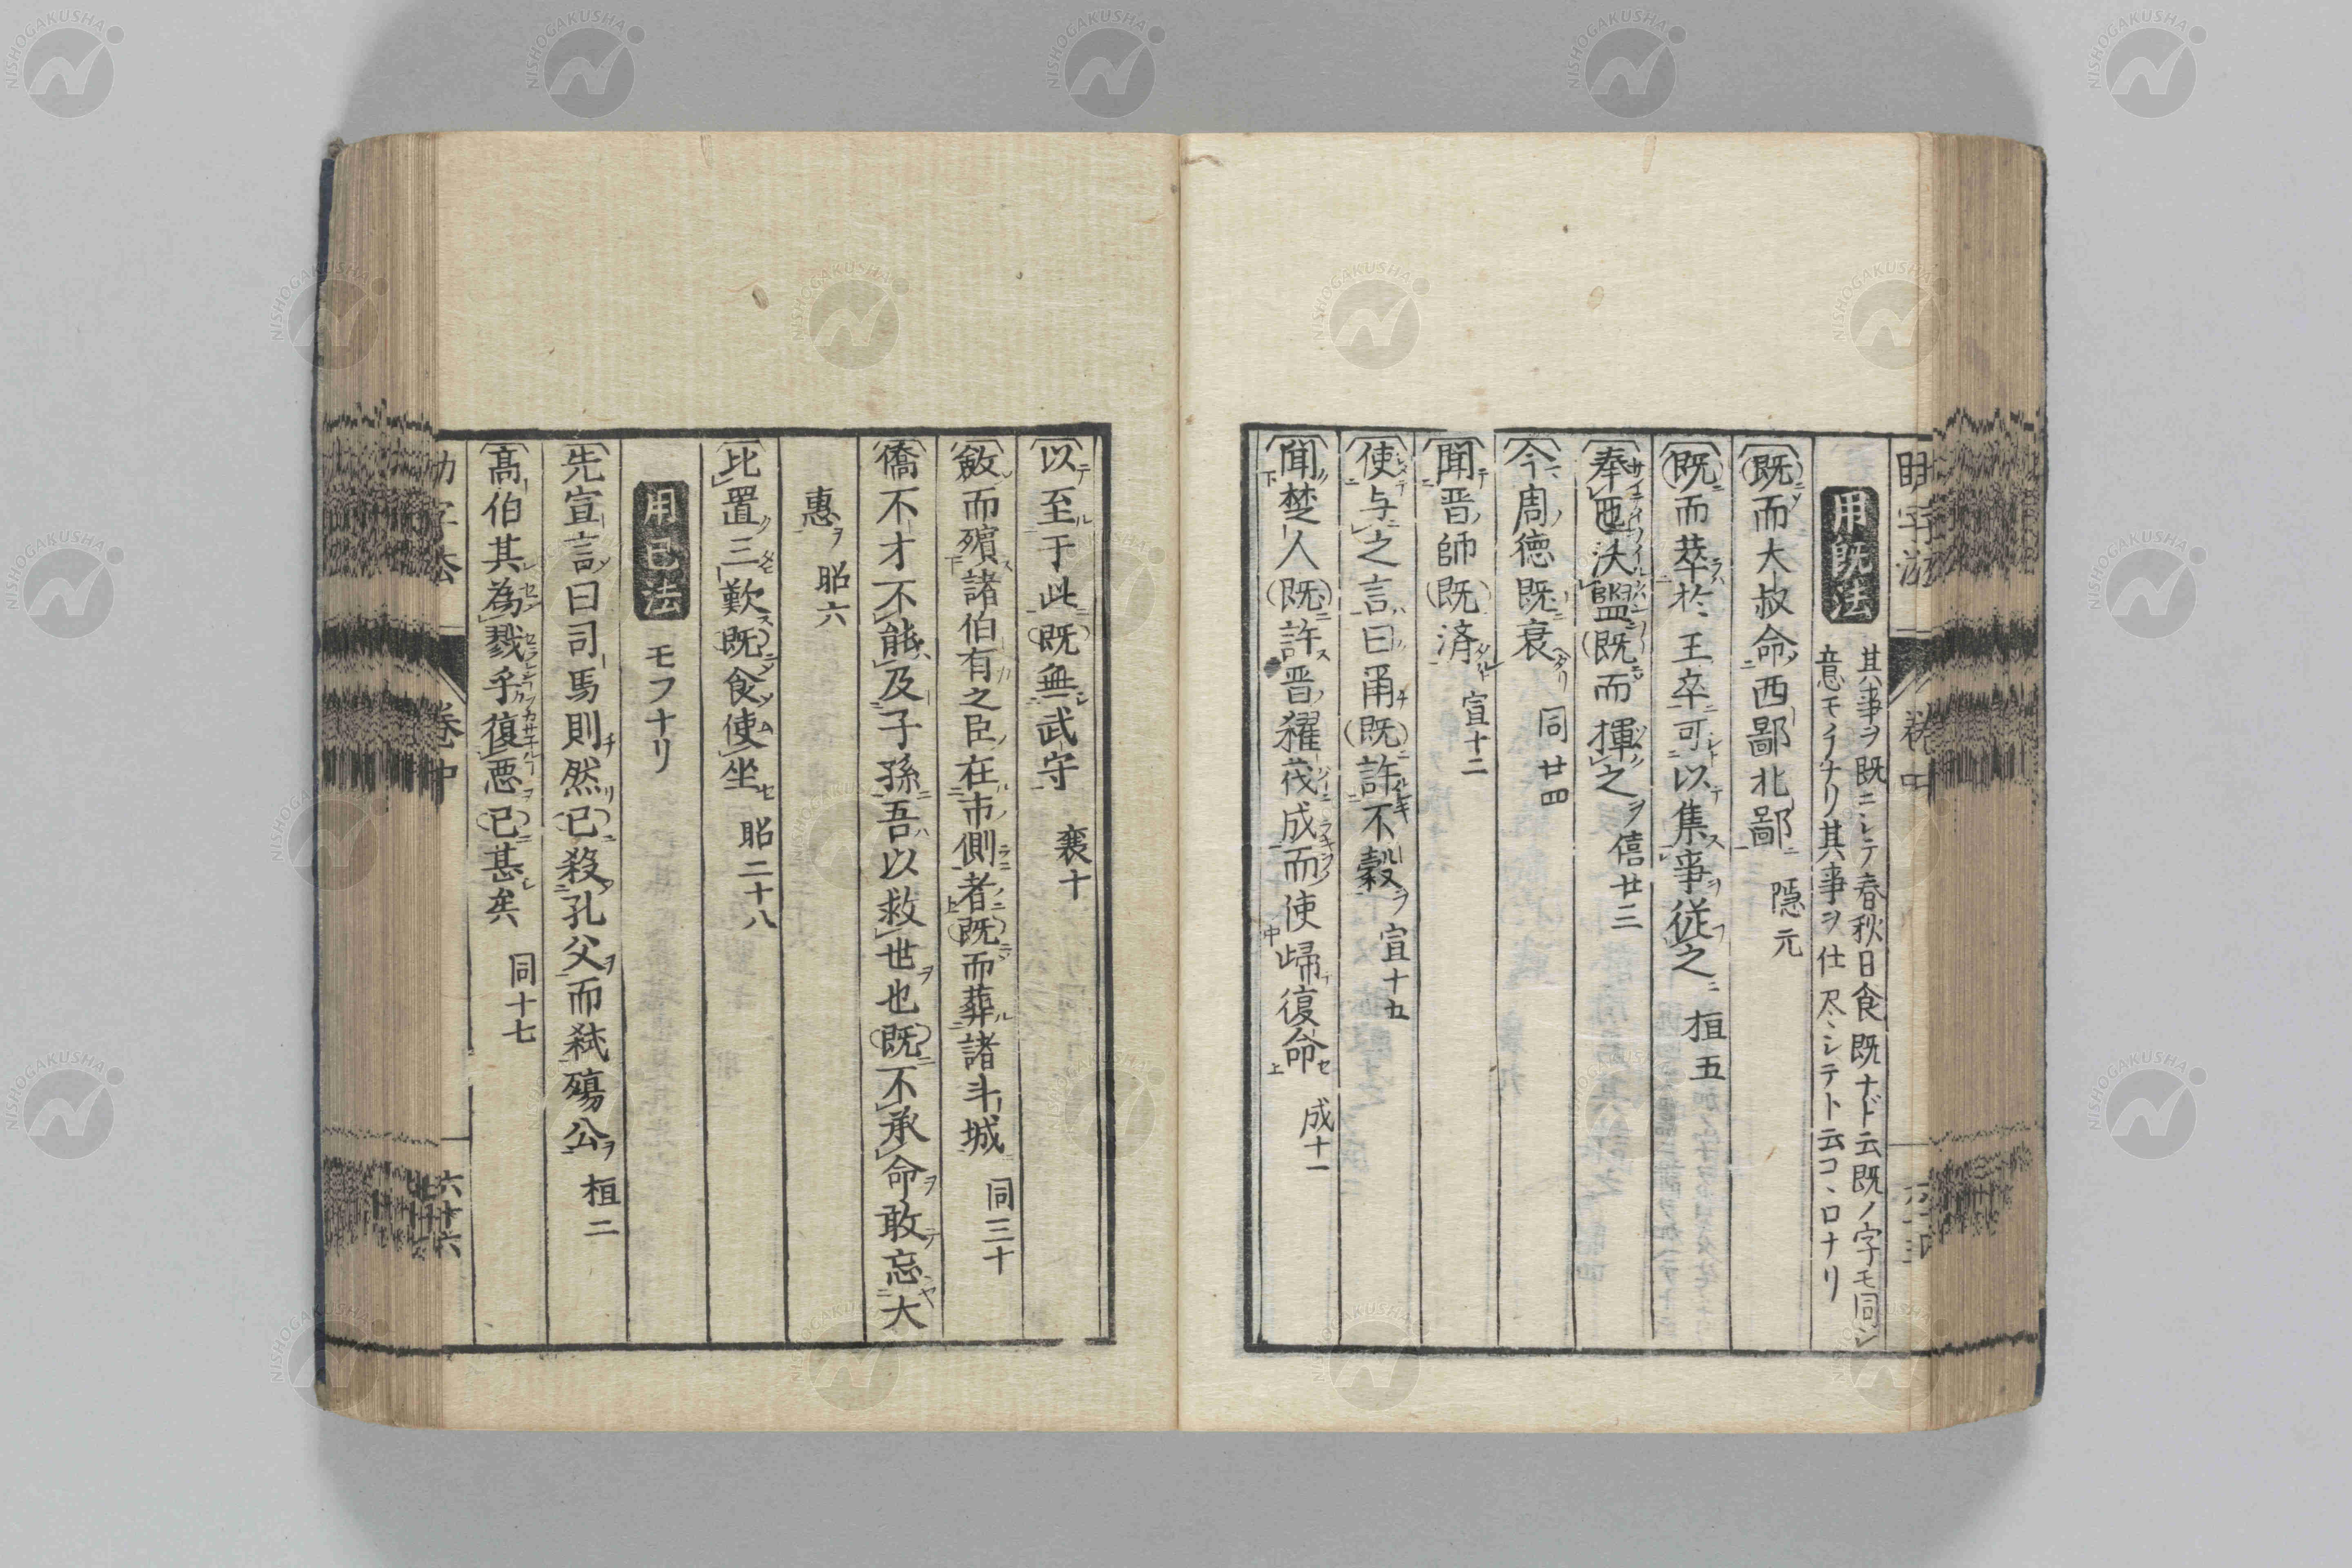 用既法 其事ヲ既ニシテ春秋日食既ナド云既ノ字モ同シ
意モイナリ其事ヲ仕尽シテト云コヽロナリ
既而大叔命西鄙北鄙 隠元
既而萃於王卒可以集事従之 桓五
奉匜沃盥既而揮之 僖廿三
今周徳既衰 同廿四
聞晋師既済 宣十二
使与之言曰甬既許不穀 宣十五
聞楚人既許晋糴茷成而使帰復命 成十一
以至于此既無武守 襄十
斂而殯諸伯有之臣在市側者既而葬諸斗城 同三十
僑不才不能及子孫吾以救世也既不承命敢忘大
惠 昭六
比置三歎既食使坐 昭二十八
用已法 モフナリ
先宣言曰司馬則然已殺孔父而弑殤公 桓二
高伯其為戮乎復悪已甚矣 同十七
巻中
六十六
NISHOGAKUSHA